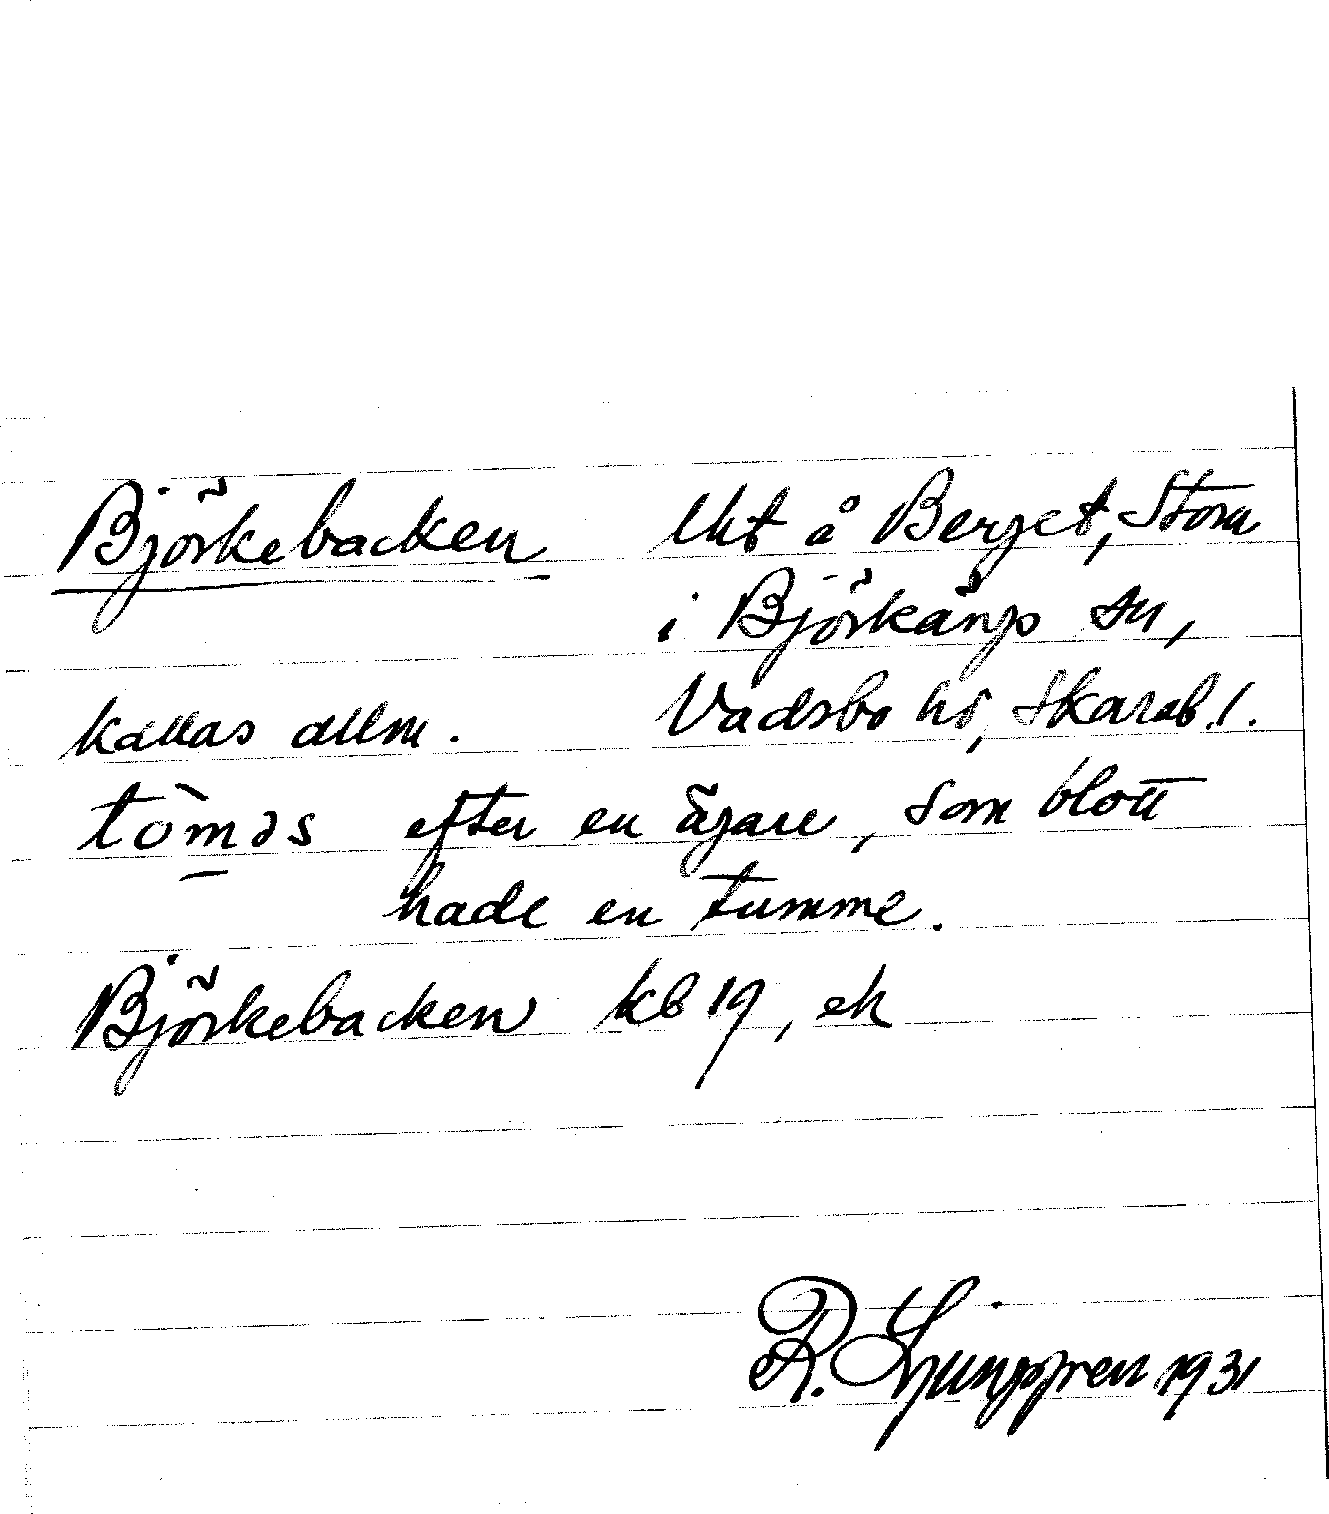 Björkebacken lht å Berget, Stora
i Björkängs sn,
kallas allm. Vadsbo hd, Skarab. l.
tòmas efter en ägare, som blott
hade en tumme.
Björkebacken kb 19, ek
R. Ljunggren 1931